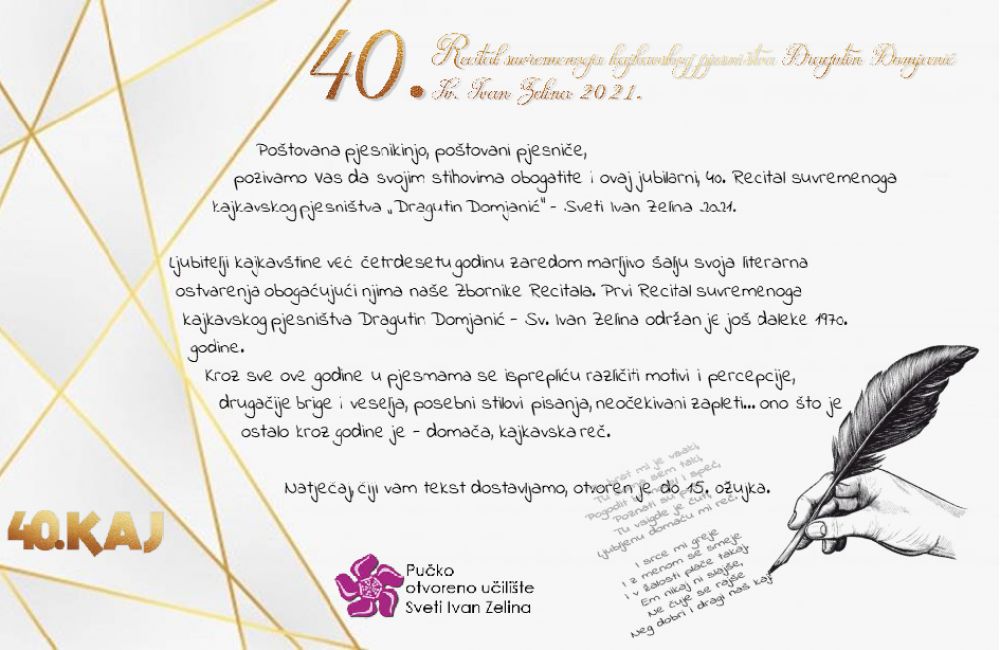 40. Recital suvremenoga kajkavskog pjesništva Dragutin Domjanić
Sv. Ivan Zelina 2021.
Poštovana pjesnikinjo, poštovani pjesniče,
pozivamo Vas da svojim stihovima obogatite i ovaj jubilarni, 40. Recital suvremenoga
kajkavskog pjesništva „Dragutin Domjanić“ - Sveti Ivan Zelina 2021.
Ljubitelji kajkavštine već četrdesetu godinu zaredom marljivo šalju svoja literarna
ostvarenja obogaćujući njima naše Zbornike Recitala. Prvi Recital suvremenoga
kajkavskog pjesništva Dragutin Domjanić - Sv. Ivan Zelina održan je još daleke 1970.
godine.
Kroz sve ove godine u pjesmama se isprepliću različiti motivi i percepcije,
drugačije brige i veselja, posebni stilovi pisanja, neočekivani zapleti... ono što je
ostalo kroz godine je - domača, kajkavska reč.
Natječaj, čiji vam tekst dostavljamo, otvoren je do 15. ožujka.
brat mi je vsaki,
Tu sem taki,
Pogodit i speč,
Poznati su
Tu vsigde je čuti,
Ljubljenu domaču mi reč.
I srce mi greje
I z menom se smeje
I v žalosti plače takaj
Em nikaj ni slajše,
Ne čuje se rajše
Neg dobri i dragi naš kaj
40.KAJ
Pučko
otvoreno učilište
Sveti Ivan Zelina